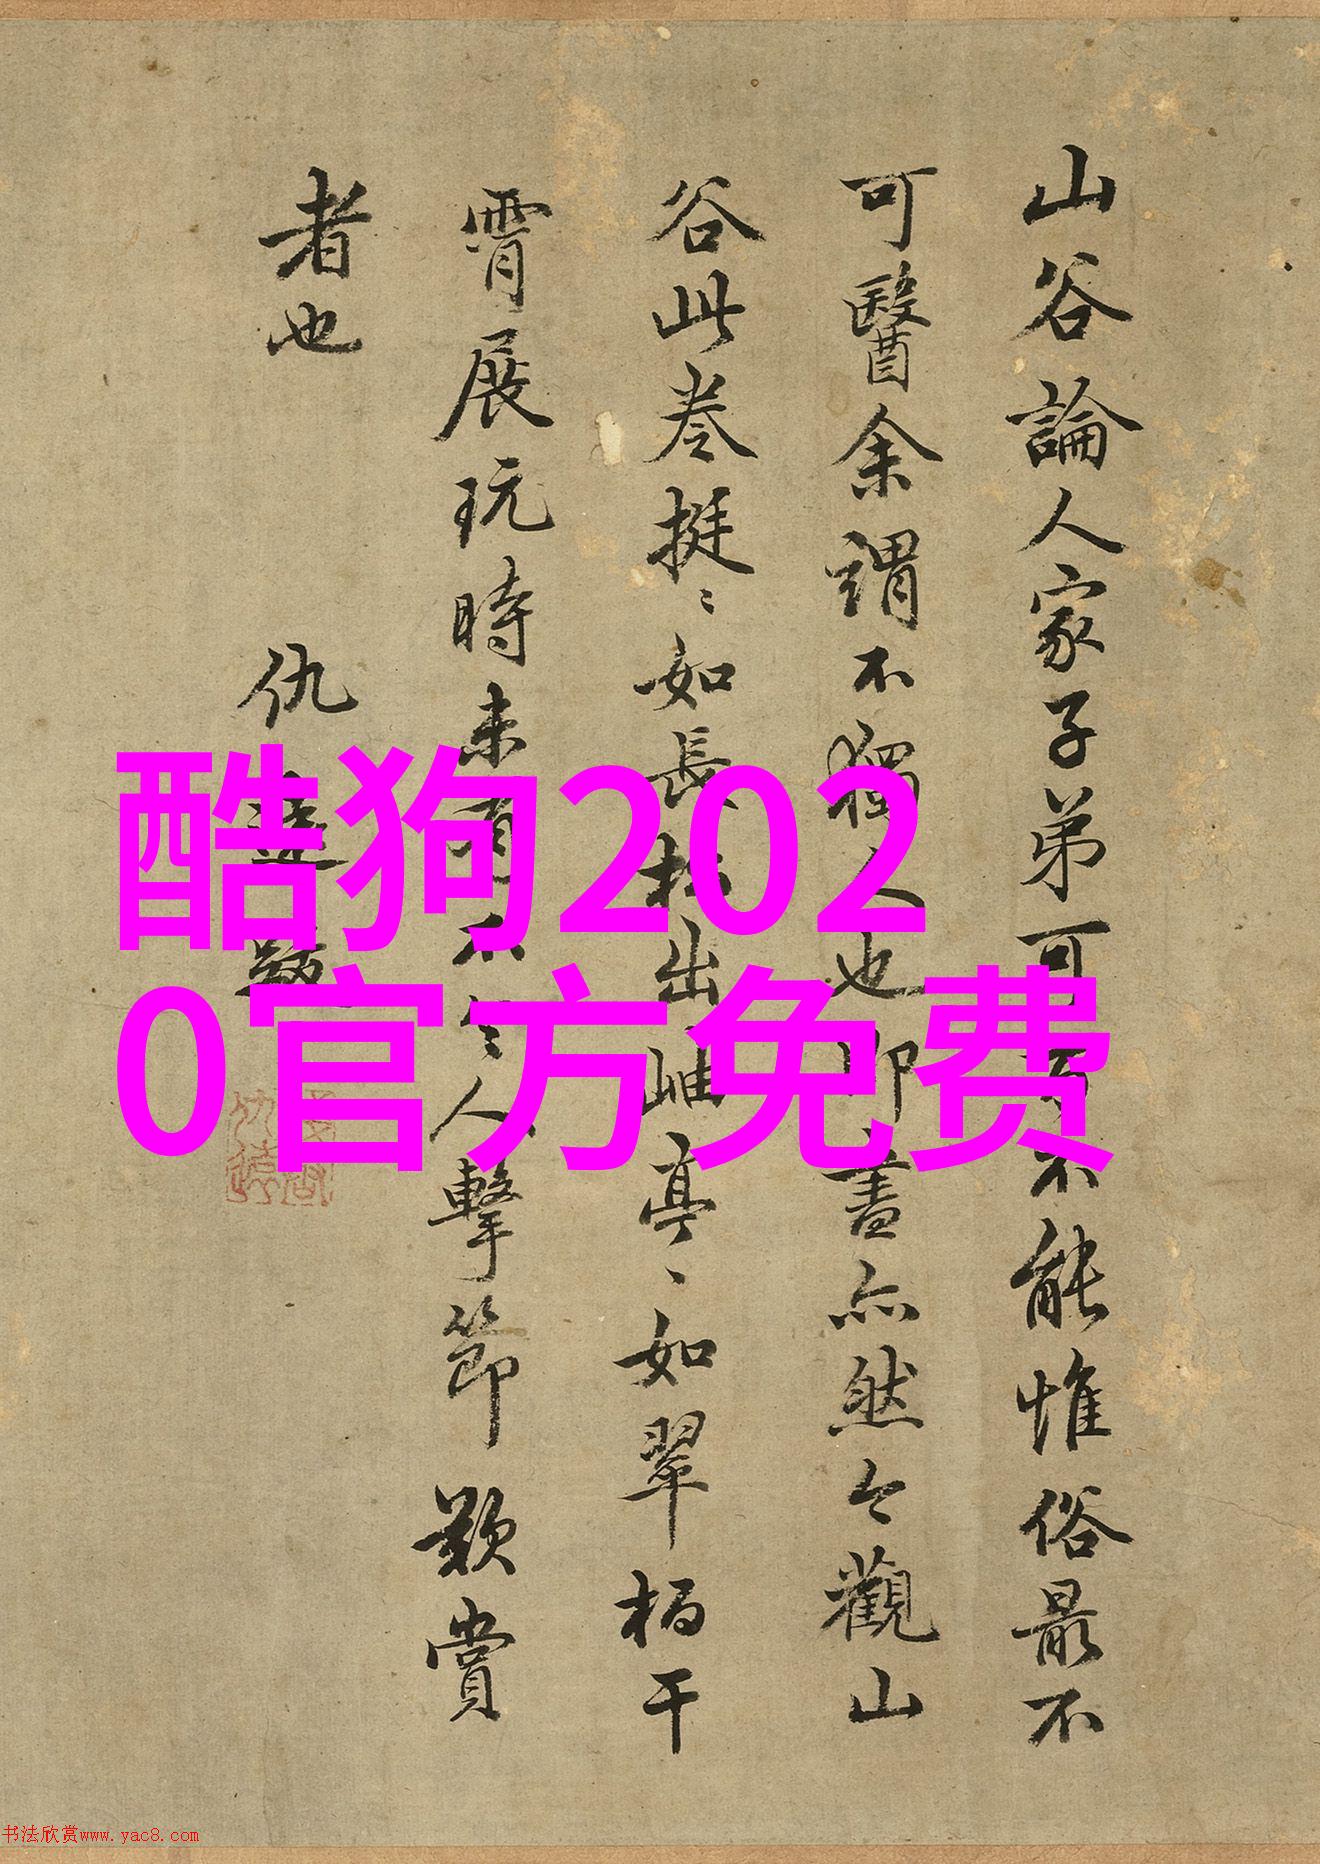 山谷論人家子弟可不能惟俗最不
可醫余謂不獨人也即書亦然今觀山
谷此卷挺〻如長松出岫亭〻如翠柏干
霄展玩時未有不令人擊節歎賞
者也
仇遠題
酷狗202
0官方免费
书法欣赏www.yac8.com